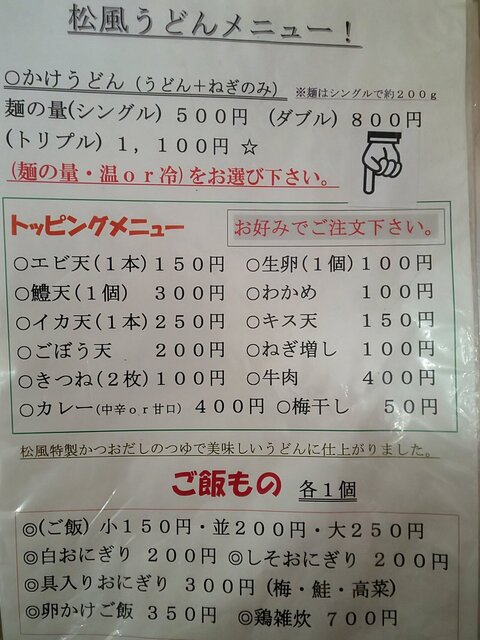 松風うどんメニュー！
○かけうどん（うどん＋ねぎのみ） ※麺はシングルで約２００ｇ
麺の量(シングル) ５００円 (ダブル) ８００円
(トリプル) １，１００円 ☆
(麺の量・温ｏｒ冷)をお選び下さい。
トッピングメニュー お好みでご注文下さい。
○エビ天(１本)１５０円 ○生卵(１個)１００円
○鱧天(１個) ３００円 ○わかめ １００円
○イカ天(１本)２５０円 ○キス天 １５０円
○ごぼう天 ２００円 ○ねぎ増し １００円
○きつね(２枚)１００円 ○牛肉 ４００円
○カレー(中辛ｏｒ甘口) ４００円 ○梅干し ５０円
松風特製かつおだしのつゆで美味しいうどんに仕上がりました。
ご飯もの 各１個
◎(ご飯) 小１５０円・並２００円・大２５０円
◎白おにぎり ２００円 ◎しそおにぎり ２００円
◎具入りおにぎり ３００円 (梅・鮭・高菜)
◎卵かけご飯 ３５０円 ◎鶏雑炊 ７００円